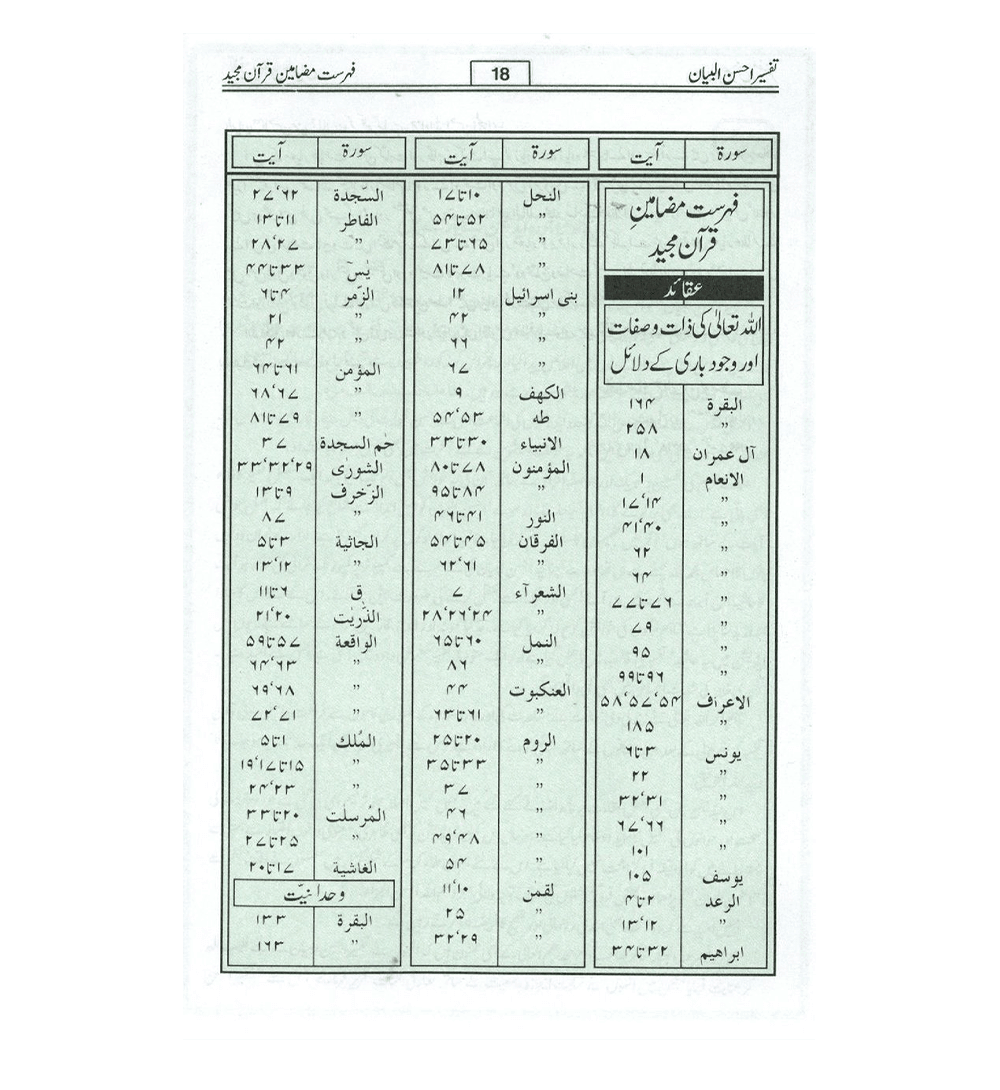 تفسیر احسن البیان
18
فہرست مضامین قرآن مجید
سورة آیت
فہرست مضامینِ
قرآن مجید
عقائد
اللہ تعالیٰ کی ذات و صفات
اور وجود باری کے دلائل
البقرة ۱۶۴
” ۲۵۸
آل عمران ۱۸
الانعام ۱
” ۱۴‘۱۷
” ۴۰‘۴۱
” ۶۲
” ۶۴
” ۷۶تا۷۷
” ۷۹
” ۹۵
” ۹۶تا۹۹
الاعراف ۵۴‘۵۷‘۵۸
” ۱۸۵
یونس ۳تا۶
” ۲۲
” ۳۱‘۳۲
” ۶۶‘۶۷
” ۱۰۱
یوسف ۱۰۵
الرعد ۲تا۴
” ۱۲‘۱۳
ابراهیم ۳۲تا۳۴
سورة آیت
النحل ۱۰تا۱۷
” ۵۲تا۵۴
” ۶۵تا۷۳
” ۷۸تا۸۱
بنی اسرائیل ۱۲
” ۴۲
” ۶۶
” ۶۷
الکهف ۹
طه ۵۳‘۵۴
الانبیاء ۳۰تا۳۳
المؤمنون ۷۸تا۸۰
” ۸۴تا۹۵
النور ۴۱تا۴۶
الفرقان ۴۵تا۵۴
” ۶۱‘۶۲
الشعرآء ۷
” ۲۴‘۲۶‘۲۸
النمل ۶۰تا۶۵
” ۸۶
العنکبوت ۴۴
” ۶۱تا۶۳
الروم ۲۰تا۲۵
” ۳۳تا۳۵
” ۳۷
” ۴۶
” ۴۸‘۴۹
” ۵۴
لقمٰن ۱۰‘۱۱
” ۲۵
” ۲۹‘۳۲
سورة آیت
السّجدة ۶۲‘۲۷
الفاطر ۱۱تا۱۳
” ۲۷‘۲۸
یٰسٓ ۳۳تا۴۴
الزّمر ۴تا۶
” ۲۱
” ۴۲
المؤمن ۶۱تا۶۴
” ۶۷‘۶۸
” ۷۹تا۸۱
حٰم السجدة ۳۷
الشورٰی ۲۹‘۳۲‘۳۳
الزّخرف ۹تا۱۳
” ۸۷
الجاثیة ۳تا۵
” ۱۲‘۱۳
ق ۶تا۱۱
الذّریٰت ۲۰‘۲۱
الواقعة ۵۷تا۵۹
” ۶۳‘۶۴
” ۶۸‘۶۹
” ۷۱‘۷۲
المُلك ۱تا۵
” ۱۵تا۱۷‘۱۹
” ۲۳‘۲۴
المُرسلت ۲۰تا۳۳
” ۲۵تا۲۷
الغاشیة ۱۷تا۲۰
وحدانیّت
البقرة ۱۳۳
” ۱۶۳